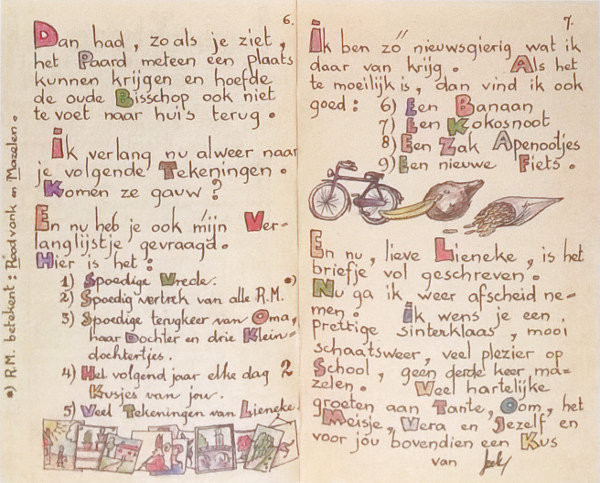 6.
Dan had, zoals je ziet,
het Paard meteen een plaats
kunnen krijgen en hoefde
de oude Bisschop ook niet
te voet naar huis terug.
Ik verlang nu alweer naar
je volgende Tekeningen.
Komen ze gauw?
En nu heb je ook mijn Ver-
langlijstje gevraagd.
Hier is het:
1) Spoedige Vrede.
2) Spoedig vertrek van alle R.M. *)
3) Spoedige terugkeer van Oma,
haar Dochter en drie Klein-
dochtertjes.
4) Het volgend jaar elke dag 2
Kusjes van jou.
5) Veel Tekeningen van Lieneke.
*) R.M. betekent: Roodvonk en Mazelen.
7.
Ik ben zó nieuwsgierig wat ik
daar van krijg. Als het
te moeilijk is, dan vind ik ook
goed: 6) Een Banaan
7) Een Kokosnoot
8) Een Zak Apenootjes
9) Een nieuwe Fiets.
En nu, lieve Lieneke, is het
briefje vol geschreven.
Nu ga ik weer afscheid ne-
men. Ik wens je een
prettige sinterklaas, mooi
schaatsweer, veel plezier op
School, geen derde keer ma-
zelen. Veel hartelijke
groeten aan Tante, Oom, het
Meisje, Vera en Jezelf en
voor jóu bovendien een Kus
van